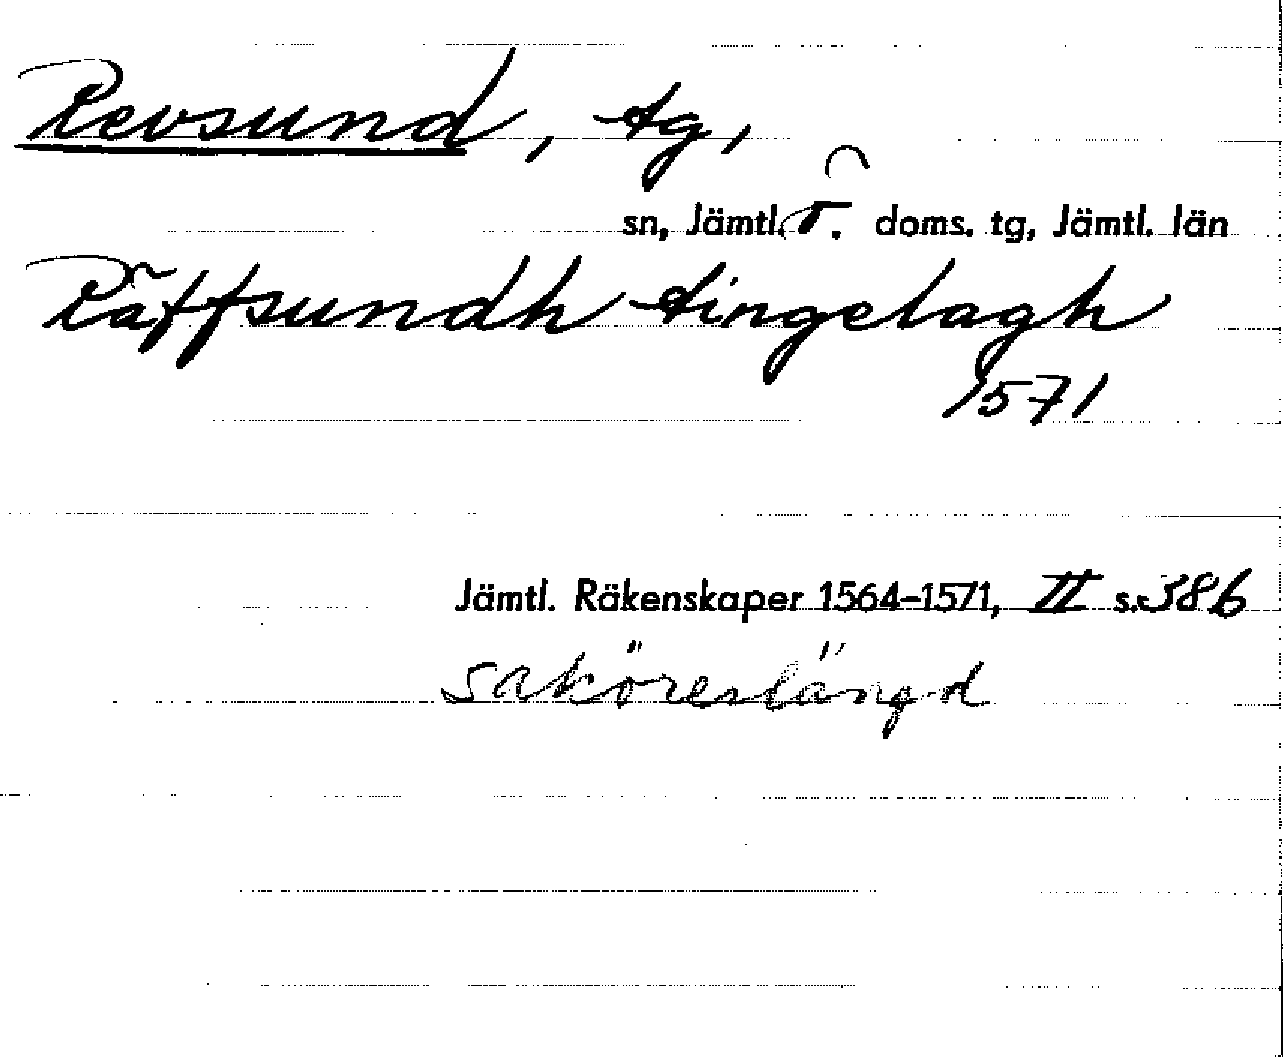 Revsund, tg,
sn, Jämtl. ö. doms. tg, Jämtl. län
Räffsundh tingelagh
1571
Jämtl. Räkenskaper 1564-1571, II s. 386
saköreslängd